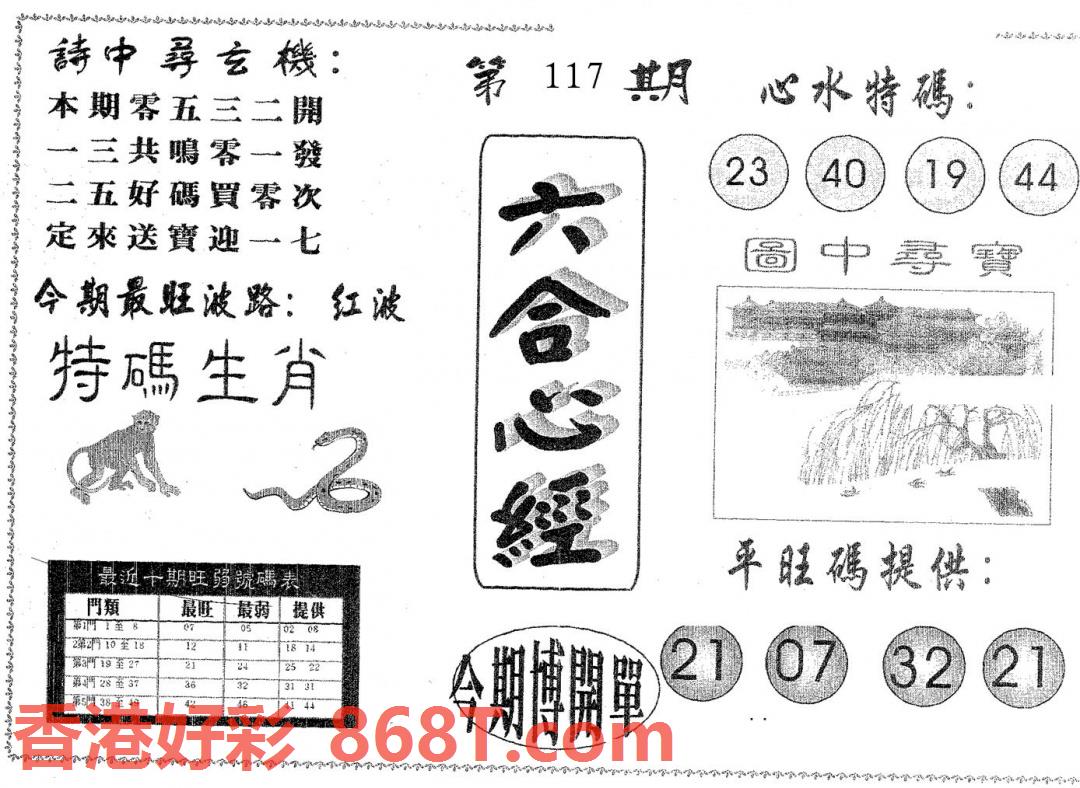 詩中尋玄機：
本期零五三二開
一三共鳴零一發
二五好碼買零次
定來送寶迎一七
今期最旺波路：红波
特碼生肖
最近十期旺弱號碼表
門類 最旺 最弱 提供
第1門 1 至 8 07 05 02 08
2第2門 10 至 18 12 11 18 14
第3門 19 至 27 21 24 25 22
第4門 28 至 37 36 32 31 31
第5門 38 至 49 42 46 41 44
第 117 期
六合心經
今期博開單
心水特碼：
23 40 19 44
圖中尋寶
平旺碼提供：
21 07 32 21
香港好彩 868T.com